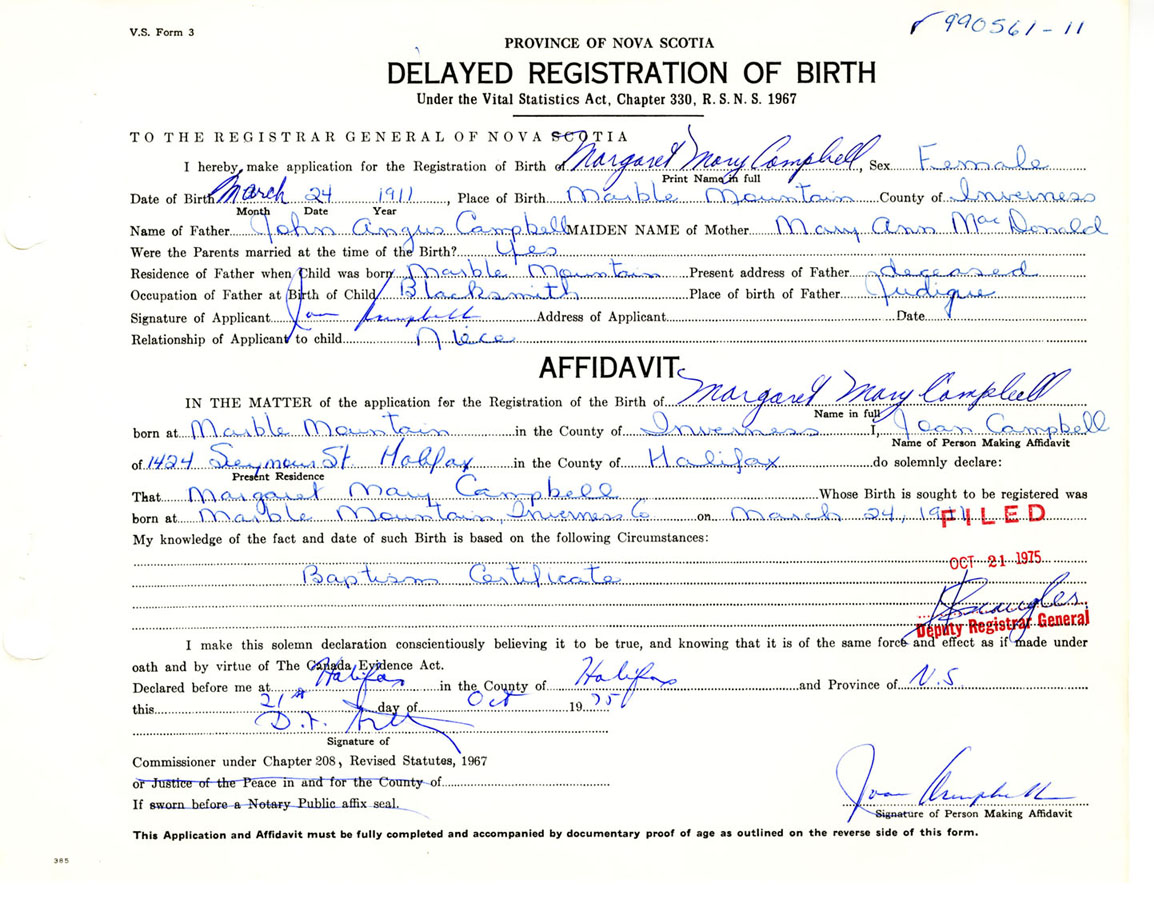 V.S. Form 3
990561-11
PROVINCE OF NOVA SCOTIA
DELAYED REGISTRATION OF BIRTH
Under the Vital Statistics Act, Chapter 330, R.S.N.S. 1967
TO THE REGISTRAR GENERAL OF NOVA SCOTIA
I hereby make application for the Registration of Birth of Margaret Mary Campbell, Sex Female
Print Name in full
Date of Birth March 24 1911, Place of Birth Marble Mountain County of Inverness
Month Date Year
Name of Father John Angus Campbell MAIDEN NAME of Mother Mary Ann MacDonald
Were the Parents married at the time of the Birth? Yes
Residence of Father when Child was born Marble Mountain Present address of Father deceased
Occupation of Father at Birth of Child Blacksmith Place of birth of Father Judique
Signature of Applicant Joan Campbell Address of Applicant Date
Relationship of Applicant to child Niece
AFFIDAVIT
IN THE MATTER of the application for the Registration of the Birth of Margaret Mary Campbell
Name in full
born at Marble Mountain in the County of Inverness I, Joan Campbell
Name of Person Making Affidavit
of 1424 Seymour St. Halifax in the County of Halifax do solemnly declare:
Present Residence
That Margaret Mary Campbell Whose Birth is sought to be registered was
born at Marble Mountain, Inverness Co on March 24, 1911
FILED
My knowledge of the fact and date of such Birth is based on the following Circumstances:
OCT 21 1975
Baptism Certificate
Deputy Registrar General
I make this solemn declaration conscientiously believing it to be true, and knowing that it is of the same force and effect as if made under
oath and by virtue of The Canada Evidence Act.
Declared before me at Halifax in the County of Halifax and Province of N.S.
this 21st day of Oct 1975
D.F.
Signature of
Commissioner under Chapter 208, Revised Statutes, 1967
or Justice of the Peace in and for the County of
If sworn before a Notary Public affix seal.
Joan Campbell
Signature of Person Making Affidavit
This Application and Affidavit must be fully completed and accompanied by documentary proof of age as outlined on the reverse side of this form.
385